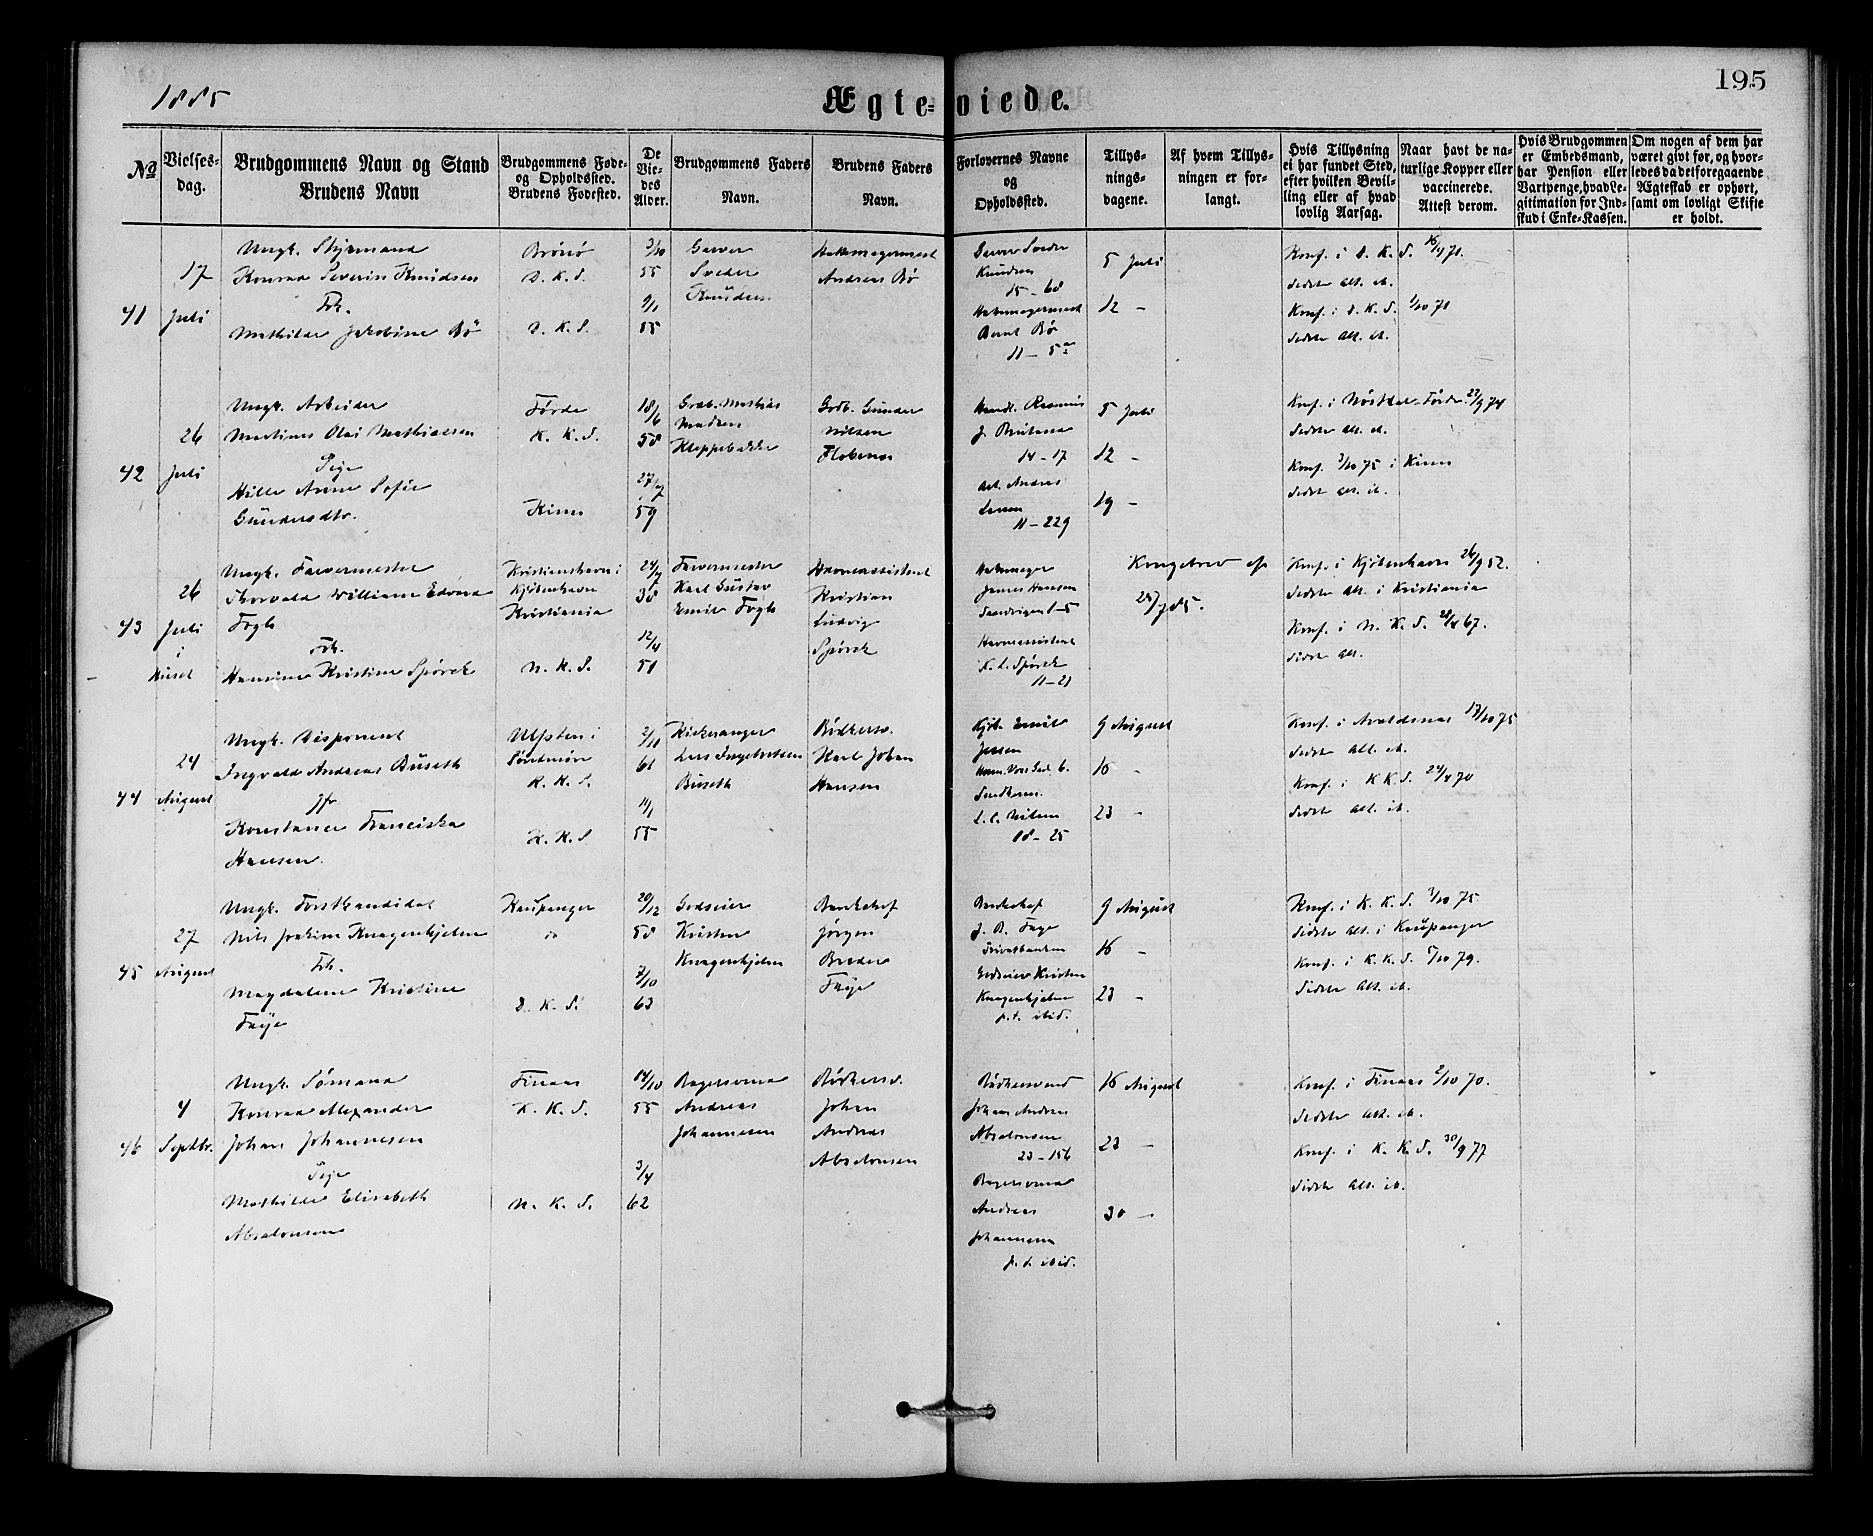 1885
Ægte=viede.
195
No
Vielses-dag.
Brudgommens Navn og Stand
Brudens Navn
Brudgommens Føde-
og Opholdssted.
Brudens Fødested.
De
Vie-
des
Alder.
Brudgommens Faders
Navn.
Brudens Faders
Navn.
Forlovernes Navne
og
Opholdssted.
Tillys-
nings-
dagene.
Af hvem Tillys-
ningen er for-
langt.
Hvis Tillysning
ei har fundet Sted,
efter hvilken Bevil-
ling eller af hvad
lovlig Aarsag.
Naar havt de na-
turlige Kopper eller
vaccinerede.
Attest derom.
Hvis Brudgommen
er Embedsmand,
har Pension eller
Vartpenge, hvad Le-
gitimation for Ind-
skud i Enke-Kassen.
Om nogen af dem har
været givt før, og hvor-
ledes da det foregaaende
Ægteskab er ophørt,
samt om lovligt Skifte
er holdt.
41
17
Juli
Ungk. Styrmand
Konrad Severin Knudsen
Frk.
Mathilde Jakobine Bö
Brönö
D. K. S.
D. K. S.
3/10
55
9/1
55
Garver
Sveder
Knudsen
Hattemagermest
Andreas Bö
Garver Sveder
Knudsen
15 - 68
Hattemagermest
Bernt Bö
11 - 5
5 Juli
12 -
Konf. i D. K. S. 16/4 70.
Sidste Alt. ib.
Konf. i D. K. S. 1/10 71
Sidste Alt. ib.
42
26
Juli
Ungk. Arbeider
Martinus Olai Mathiassen
Pige
Hille Anne Sofie
Gundersdtr.
Förde
K. K. S.
Kinn
18/6
58
27/7
59
Grdb. Mathias
Madsen
Kleppebakke
Grdb. Gunder
Nilsen
Handl. Rasmus
14 - 17
Arb. Andreas
Larsen
11 - 229
5 Juli
12 -
19 -
Konf. i Nöstdal - Förde 27/9 74
Sidste Alt. ib.
Konf. 3/10 75 i Kinn
Sidste Alt. ib.
43
26
Juli
i
Huset
Ungk. Farvermester
Thorvald William Edvard
Fogh
Frk.
Hansine Kristine Spörck
Kristianshavn i
Kjöbenhavn
Kristiania
N. K. S.
24/7
38
12/4
51
Farvermester
Karl Gustav
Emil Fogh
Havneassistent
Kristian
Ludvig
Spörck
Hattemager
James Hansen
Sandvigen 1-5
Havneassistent
K. L. Spörck
11 - 21
Kongebrev af
24/7 85.
Konf. i Kjöbenhavn 26/9 52.
Sidste Alt. i Kristiania
Konf. i N. K. S. 28/4 67.
Sidste Alt.
44
24
August
Ungk. Disponent
Ingvald Andreas Buseth
Jfr
Konstance Franciska
Hansen.
Ulfsten i
Söndmöre
K. K. S.
K. K. S
2/11
61
11/1
55
Kirkesanger
Lars Ingebretsen
Buseth
Bödkersv.
Karl Johan
Hansen
Kjöb. Emil
Jensen
L. C. Nilsen
18 - 25
9 August
16 -
23 -
Konf. i Avaldsnes 17/10 75
Sidste Alt. ib.
Konf. i K. K. S. 24/4 70
Sidste Alt. ib.
45
27
August
Ungk. Forstkandidat
Nils Joakim Knagenhjelm
Frk.
Magdalene Kristine
Faye
Kaupanger
do
D. K. S.
20/12
58
7/10
63
Godseier
Kristen
Knagenhjelm
Bankchef
Jörgen
Breder
Faye
Bankchef
J. B. Faye
Privatbanken
Godseier Kristen
Knagenhjelm
p.t. ibid.
9 August
16 -
23 -
Konf. i K. K. S. 3/10 75
Sidste Alt. i Kaupanger
Konf. i K. K. S. 5/10 79.
Sidste Alt. ib.
46
4
Septbr.
Ungk. Sömand
Konrad Alexander
Johan Johannesen
Pige
Mathilde Elisabeth
Absalonsen
Finaas
K. K. S.
N. K. S.
14/10
55
3/4
62
Bagersvend
Andreas
Johannesen
Bödkersv.
Johan
Andreas
Absalonsen
Bödkersvend
Johan Andreas
Absalonsen
23 - 156
Bagersvend
Andreas
Johannesen
p. t. ibid.
16 August
23 -
30 -
Konf. i Finaas 2/10 70.
Sidste Alt. ib.
Konf. i K. K. S. 30/9 77
Sidste Alt. ib.